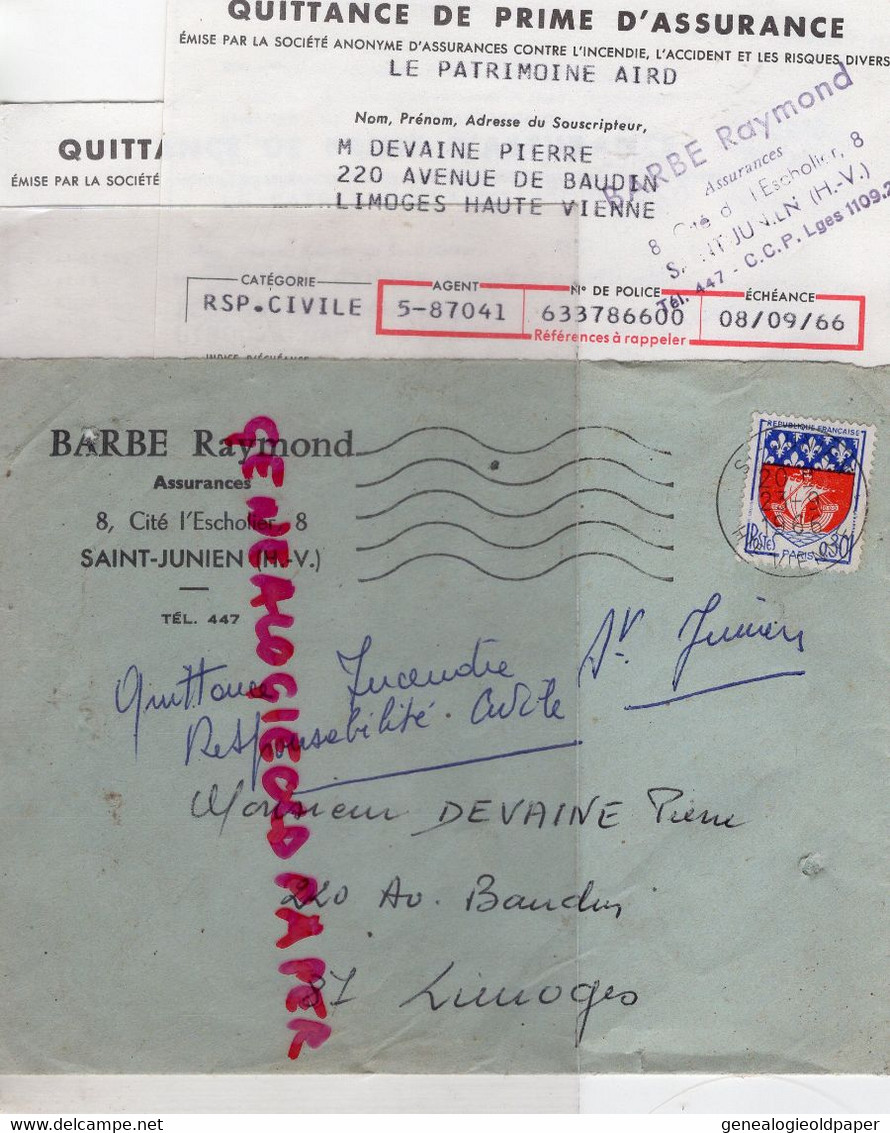 QUITTANCE DE PRIME D'ASSURANCE
ÉMISE PAR LA SOCIÉTÉ ANONYME D'ASSURANCES CONTRE L'INCENDIE, L'ACCIDENT ET LES RISQUES DIVERS
LE PATRIMOINE AIRD
Nom, Prénom, Adresse du Souscripteur,
M DEVAINE PIERRE
220 AVENUE DE BAUDIN
LIMOGES HAUTE VIENNE
BARBE Raymond
Assurances
8 Cité l'Escholier, 8
SAINT-JUNIEN (H.-V.)
Tél. 447 - C.C.P. Lges 1109.2
QUITTA
ÉMISE PAR LA SOCIÉTÉ
CATÉGORIE
RSP.CIVILE
AGENT
5-87041
N° DE POLICE
633786600
ÉCHÉANCE
08/09/66
Références à rappeler
BARBE Raymond
Assurances
8, Cité l'Escholier, 8
SAINT-JUNIEN (H.-V.)
TÉL. 447
REPUBLIQUE FRANÇAISE
POSTES
PARIS
0,30
1966
Quittance Incendie St Junien
Responsabilité Civile
Monsieur DEVAINE Pierre
220 Av. Baudin
87 Limoges
GENEALOGIEOLDPAPER
genealogieoldpaper